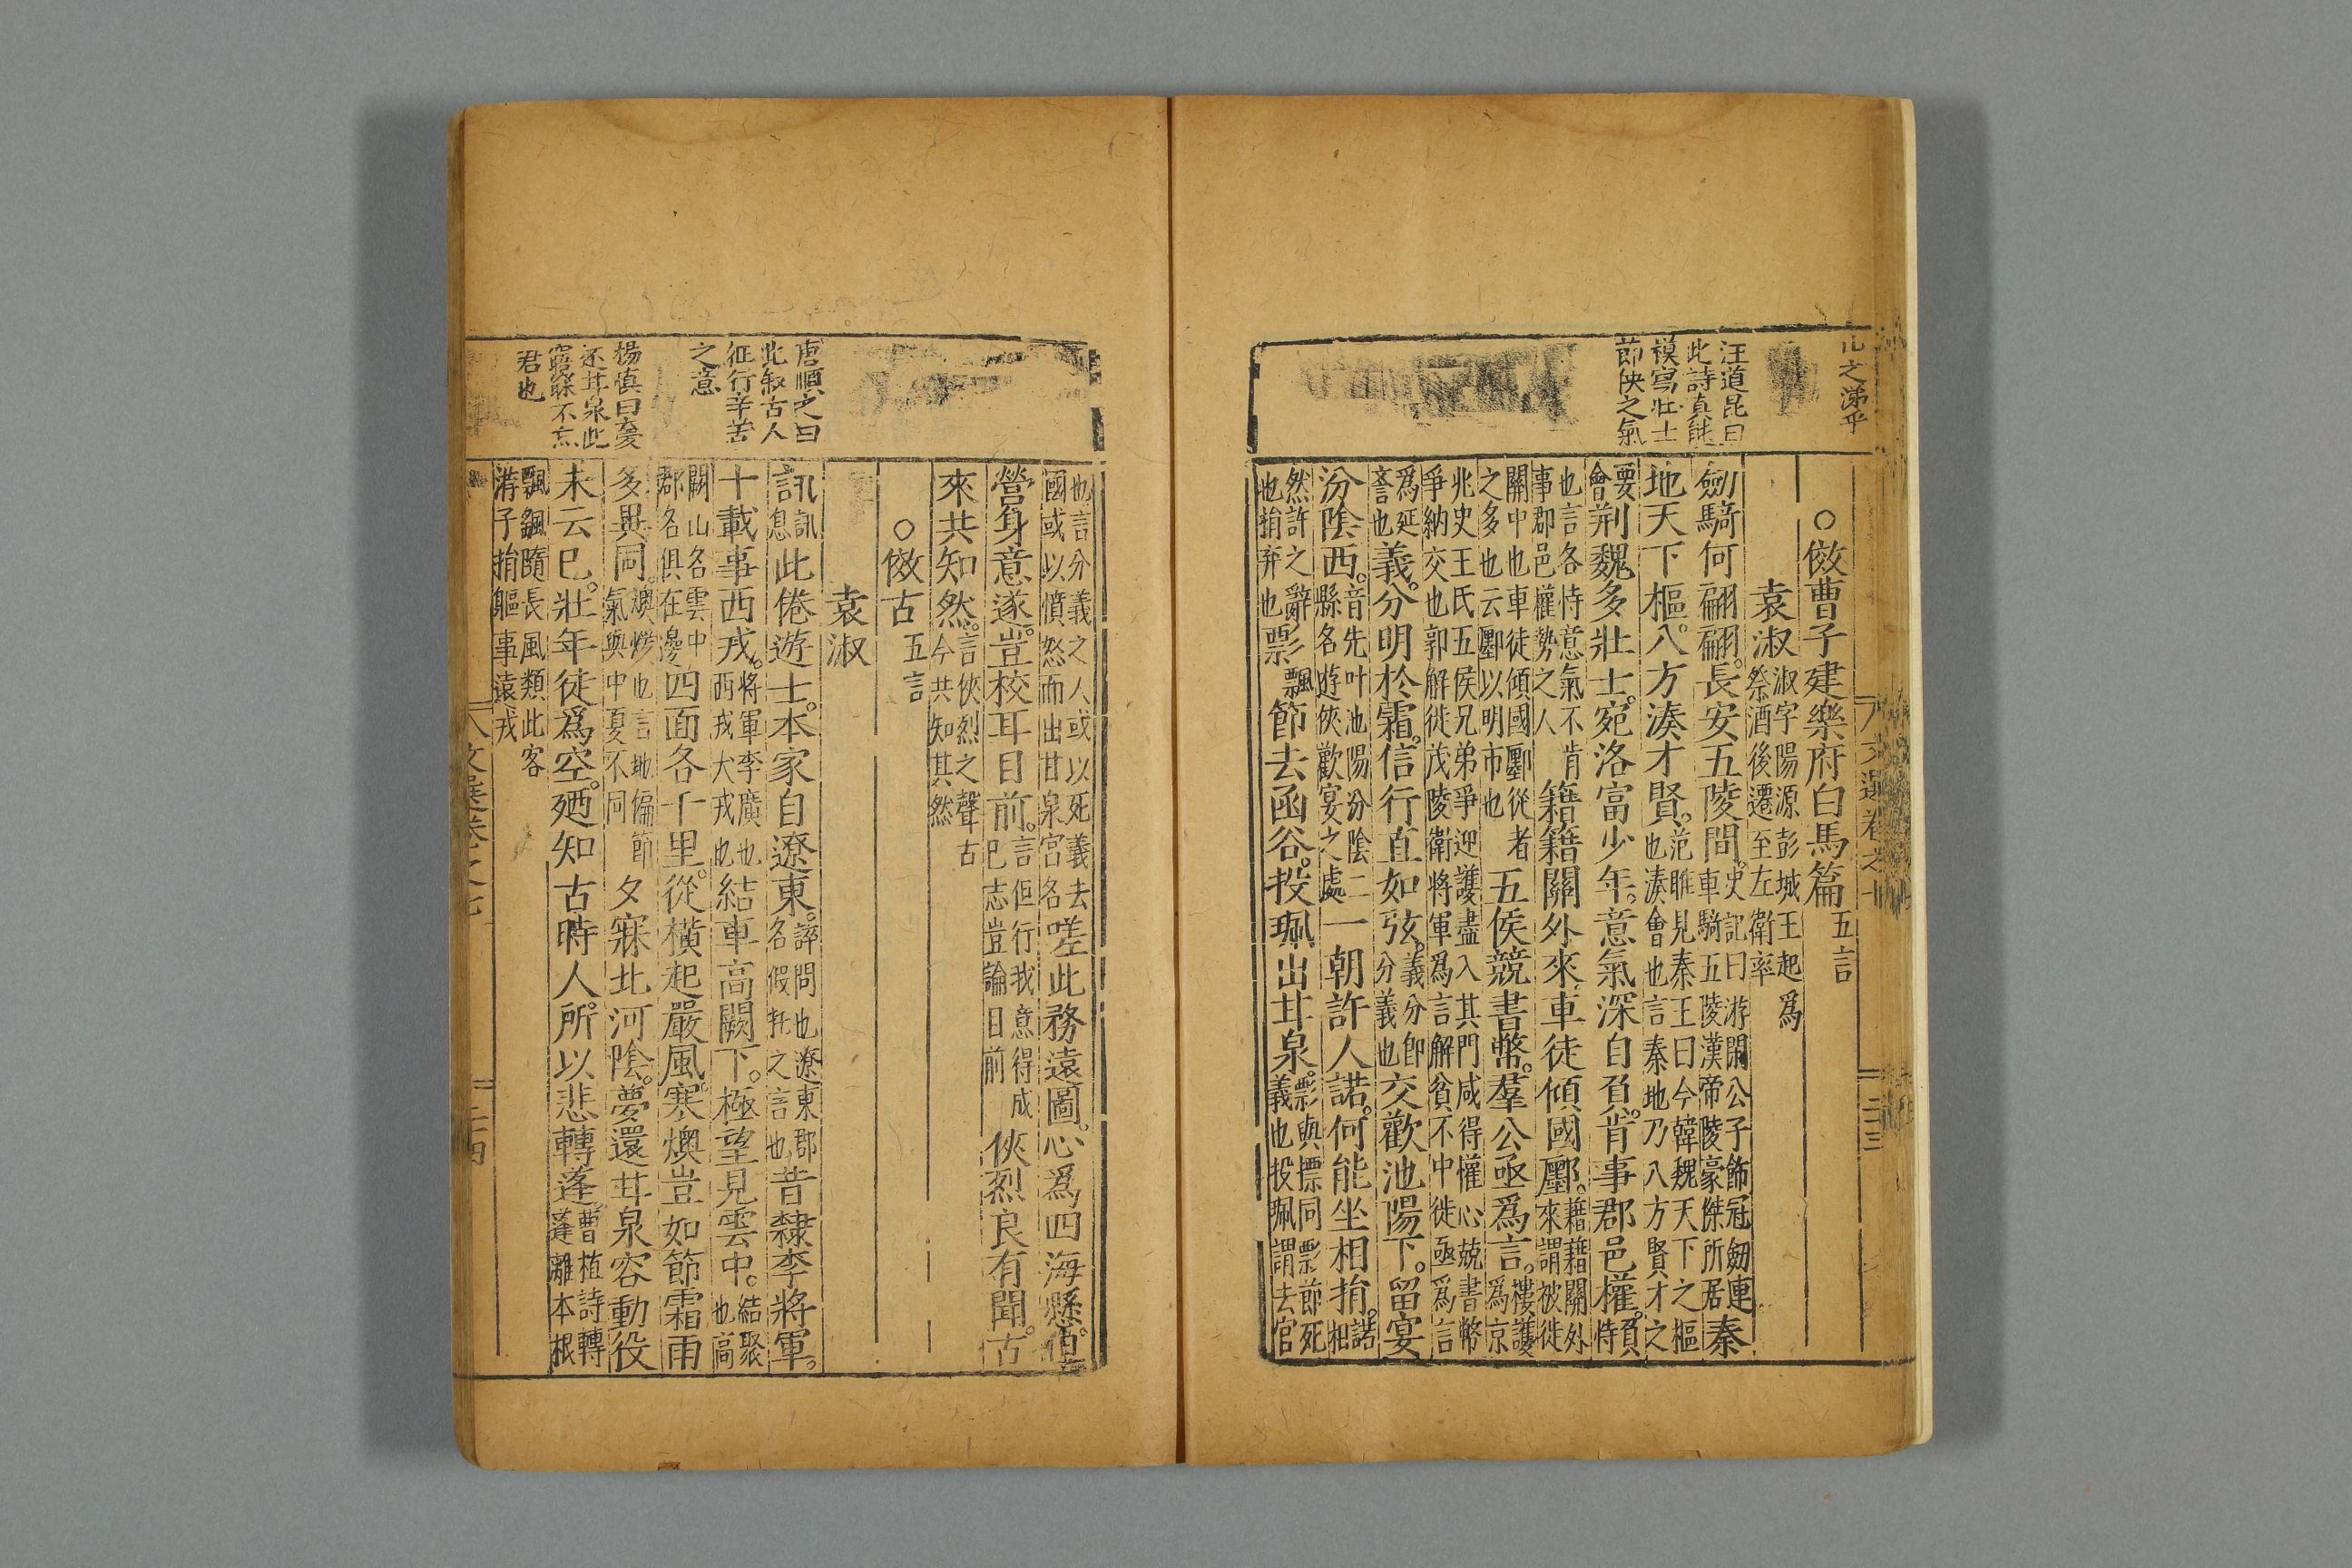 仳之涕乎
汪道昆曰
此詩真能
模寫壯士
節俠之氣
○倣曹子建樂府白馬篇五言
袁淑淑字陽源彭城王起為祭酒後遷至左衛率
劒騎何翩翩。長安五陵間。史記曰游閑公子飾冠劒連車騎五陵漢帝陵豪傑所居秦
地天下樞。八方湊才賢。范雎見秦王曰今韓魏天下之樞也湊會也言秦地乃八方賢才之
要會荆魏多壯士。宛洛富少年。意氣深自負。肯事郡邑權。負恃
也言各恃意氣不肯事郡邑權勢之人籍籍關外來車徒傾國鄽。藉藉關外來謂被徙
關中也車徒傾國鄽從之多也云鄽以明市也者五侯競書幣。羣公亟為言。樓護為京
兆史王氏五侯兄弟爭迎護盡入其門咸得懽心兢書幣爭納交也郭解徙茂陵衛將軍為言解貧不中徙亟為言
為延譽也義。分明於霜。信行直如弦。義分即分義也交歡池陽下。留宴
汾陰西。音先叶池陽汾陰二縣名遊俠歡宴之處一朝許人諾。何能坐相捐。諾相
然許之辭也捐弃也影飄節去函谷。投珮出甘泉。影與摽同影節死義也投珮謂去官
也言分義之人或以死義去國或以憤怒而出甘泉宮名嗟此務遠圖。心為四海懸。但
營身意遂。豈校耳目前。言但行我意得成已志豈論目前俠烈良有聞。古
來共知然。言俠烈之聲古今共知其然
○倣古五言
袁淑
訊訊息此倦遊士。本家自遼東。誶問也遼東郡名假托之言也昔隸李將軍。
十載事西戎。將軍李廣也西戎犬戎也結車高闕下。極望見雲中。結聚也高
闕山名雲中郡名俱在邊四面各千里。從橫起嚴風。寒燠豈如節。霜雨
多異同。燠㷉也言地偏節氣與中夏不同夕寐北河陰。夢還甘泉宮。動役
未云已。壯年徒為空。廼知古時人。所以悲轉蓬。曹植詩轉蓬離本根
飄颻隨長風類此客游子捐軀事遠戎
唐順之曰
此敘古人
征行辛苦
之意
楊慎曰夢
還甘泉此
寤寐不忘
君也